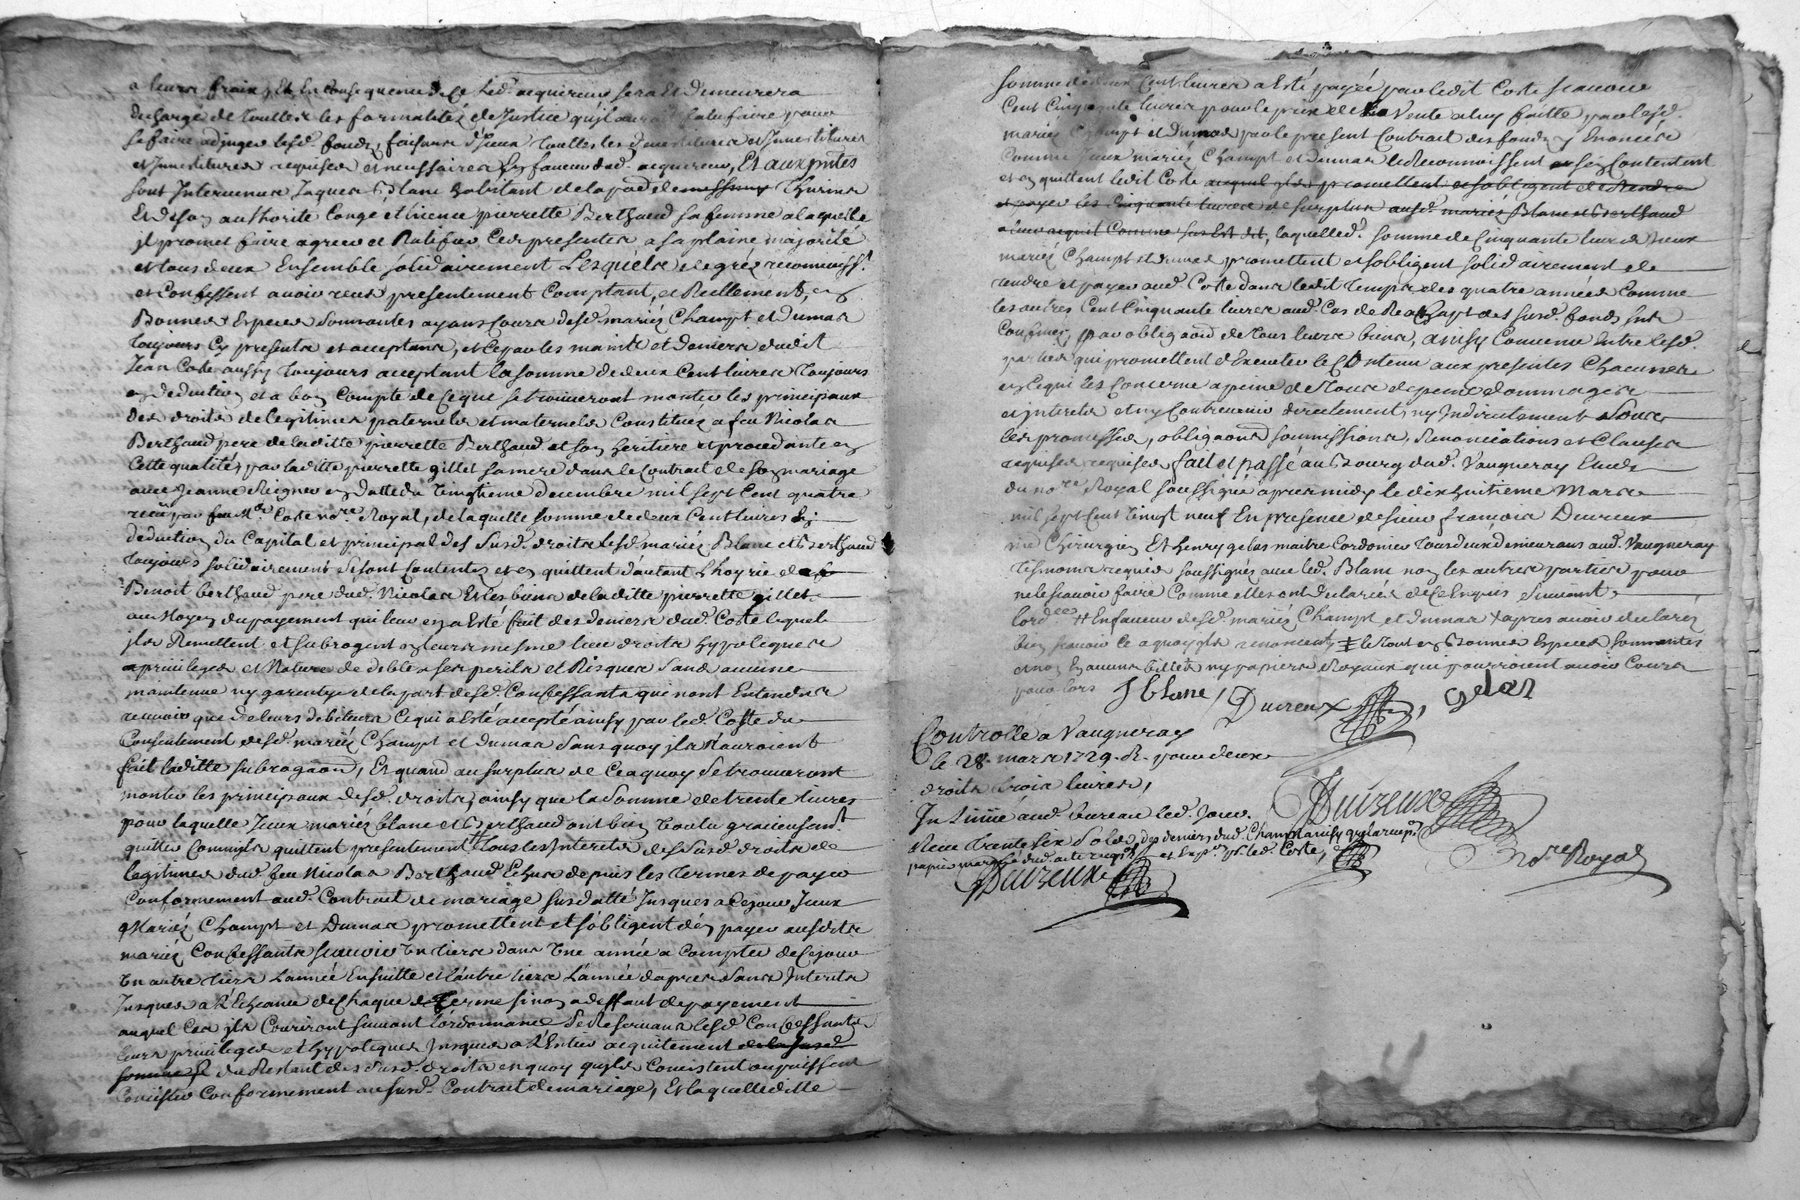 a leurs fraix, Et En Consequence de Ce led. acquereur sera Et Demeurera
decharge de touttes les formalités de Justice qu'il auroit fallu faire pour
se faire adjuger lesd. fonds, faisant d'Iceux touttes les devestitures et Investitures
requises et necessaires En faveur dud. acquereur, Et aux pntes
sont Intervenus Jaques Blanc habitant de la parr. de messimy Thurins
Et de son authorité Congé et licence pierrette Berthaud sa femme a laquelle
il promet faire agreer et Ratifier Ces presentes a sa plaine majorité
et tous deux Ensemble solidairement Lesquels de gré reconnoiss.t
et Confessent avoir receu presentement Comptant, et Reellement, en
Bonnes Especes Sonnantes ayans Cours desd. mariés Champt et Dumas
toujours Cy presents et acceptans, et Ce par les mains et deniers dudit
Jean Coste aussy toujours acceptant la somme de deux Cent livres toujours
en deduction et a bon Compte de Ce que se trouveront monter les principaux
des droits de legitimes paternels et maternels Constitués a feu Nicolas
Berthaud pere de laditte pierrette Berthaud et son heritiere et procedante en
Cette qualité, par laditte pierrette gillet sa mere dans le Contrat de son mariage
avec Jeanne Reignier en datte du vingtieme decembre mil sept Cent quatre
receu par feu M.e Coste no.re Royal, de laquelle somme de deux Cent livres En
deduction du Capital et principal des Susd. droits lesd. mariés Blanc et Berthaud
toujours solidairement se sont Contentés et en quittent d'autant L'hoyrie de
Benoit berthaud pere dud. Nicolas Et les biens de laditte pierrette gillet
au Moyen du payement qui leur en a Eté fait des deniers dud. Coste lequel
ils Remettent et subrogent en leurs mesme lieu droits hypoteques
privileges et Nature de debte a ses perils et Risques Sans aucune
maintenue ny garentye de la part desd. Confessants qui n'ont Entendu
recevoir que de leurs debiteurs Ce qui a Eté accepté ainsy par led. Coste du
Consentement desd. mariés Champt et Dumas Sans quoy ils n'auroient
fait laditte subrogaon, Et quand au surplus de Ce a quoy se trouveront
monter les principaux desd. droits, ainsy que la Somme de trente livres
pour laquelle Iceux mariés blanc et Berthaud ont bien voulu gracieusem.t
quitter Comme ils quittent presentement tous les Interets des Susd. droits de
legitimes dud. feu Nicolas Berthaud Echus depuis les termes de payer
Conformement aud. Contrat de mariage susdatté Jusques a Ce jour Iceux
Mariés Champt et Dumas promettent et s'obligent de payer auxdits
mariés Confessants scavoir un tiers dans une année a Compter de Ce jour
un autre tiers L'année Ensuitte et l'autre tiers L'année d'apres Sans Interets
Jusques a L'Echeance de Chaque terme sinon a deffaut de payement
auquel Cas ils Couriront suivant l'ordonnance Se Reservant lesd. Confessants
leurs privileges et hypoteques Jusques a L'Entier acquitement de la susd.
somme du Restant des Susd. droits en quoy qu'ils Consistent ou puissent
Consister Conformement au susd. Contrait de mariage, Et laquelleditte
somme de deux Cent livres a Eté payée par ledit Coste scavoir
Cent Cinquante livres pour le prix de la Vente a luy faitte par lesd.
mariés Champt et Dumas par le present Contrait des fonds y Enoncés
Comme Iceux mariés Champt et Dumas le Reconnoissent s'en Contentent
et en quittent ledit Coste auquel ils promettent et s'obligent de Rendre
et payer les Cinquante livres de surplus ausd. mariés Blanc et Berthaud
laquelled. somme de Cinquante livres Iceux
mariés Champt et Dumas promettent et s'obligent solidairement de
rendre et payer aud. Coste dans ledit temps des quatre années Comme
les autres Cent Cinquante livres aud. Cas de Reachapt des susd. fonds sus
Confinés, par obligaon de tous leurs biens, ainsy Convenu Entre lesd.
parties qui promettent d'Executer le Contenu aux presentes Chacunes
en Ce qui les Concerne a peine de tous depens dommages
et interets et ny Contrevenir directement, ny Indirectement Sous
les promesses, obligaons soumissions, Renonciations et Clauses
requises fait et passé au Bourg dud. Vaugneray Etude
du no.re Royal soussigné apres midy le dix huitieme Mars
mil sept Cent Vingt neuf En presence de sieur francois Duvreux
me Chirurgien Et henry gelas maitre Cordonnier tous deux demeurans aud. Vaugneray
tesmoins requis soussignés avec led. Blanc non les autres parties pour
ne le scavoir faire Comme elles ont declaré de Ce Enquis Suivant
lord.ce # En faveur desd. mariés Champt et Dumas x apres avoir declaré
bien scavoir Ce a quoy ils renoncent, ‡ le tout en Bonnes Especes sonnantes
et non En aucuns billets ny papiers Royaux qui pourroient avoir Cours
pour lors
J blanc, Duvreux, gelas
Controllé a Vaugneray
le 28. mars 1729. R. pour deux
droits trois livres,
Insinué aud. bureau led. Jour.
Receu trente six Sols des deniers dud. Champt
no.re Royal